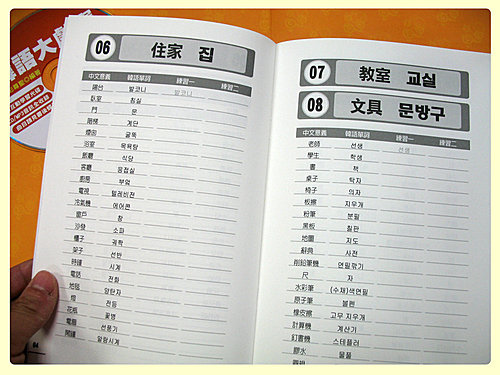 語大
06 住家 집
中文意義 韓語單詞 練習一 練習二
陽台 발코니 발코니
臥室 침실
門 문
階梯 계단
煙囪 굴뚝
浴室 목욕탕
飯廳 식당
客廳 응접실
廚房 부엌
電視 텔레비전
冷氣機 에어콘
窗戶 창
沙發 소파
櫃子 궤짝
架子 선반
時鐘 시계
電話 전화
地毯 양탄자
燈 전등
花瓶 꽃병
電扇 선풍기
鬧鐘 알람시계
04
07 教室 교실
08 文具 문방구
中文意義 韓語單詞 練習一 練習二
老師 선생 선생
學生 학생
書 책
桌子 탁자
椅子 의자
板擦 지우개
粉筆 분필
黑板 칠판
地圖 지도
辭典 사전
削鉛筆機 연필깎기
尺 자
水彩筆 (수채)색연필
原子筆 볼펜
橡皮擦 고무 지우개
計算機 계산기
釘書機 스테플러
膠水 물풀